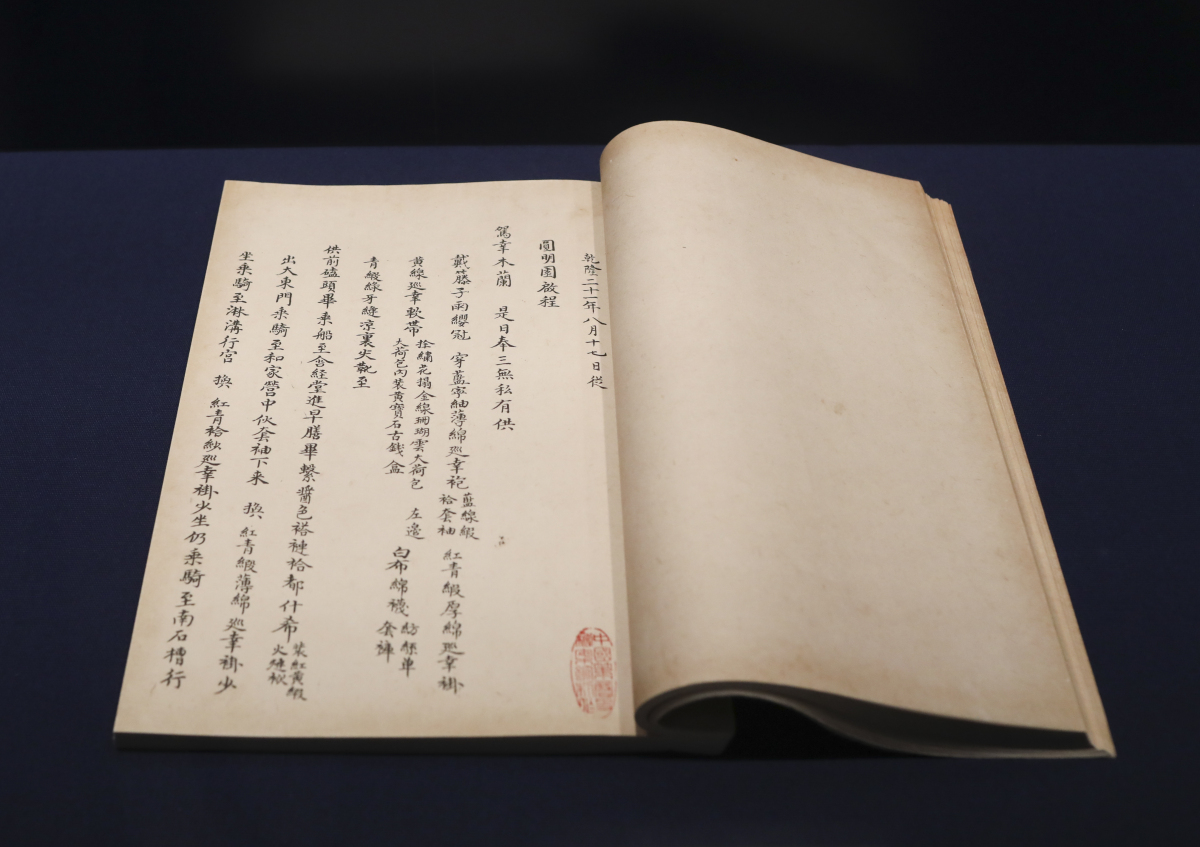 乾隆二十一年八月十七日從
圓明園啟程
駕幸木蘭 是日奉三無私有供
戴藤子雨纓冠 穿藍寧紬薄綿巡幸袍 藍線緞袷套袖 紅青緞厚綿巡幸褂
黃線巡幸軟帶 拴繡花搨金線珊瑚雲大荷包 左邊大荷包內裝黃寶石古錢盒 白布綿襪 紡絲單套褲
青緞綠牙縫涼裏尖靴至
供前磕頭畢乘船至含經堂進早膳畢繫醬色褡褳袷都什希 裝紅黃緞火鐮袱
出大東門乘騎至和家營中伙套袖下來 換 紅青緞薄綿巡幸褂少
坐乘騎至淋溝行宮 換 紅青袷紗巡幸褂少坐仍乘騎至南石槽行